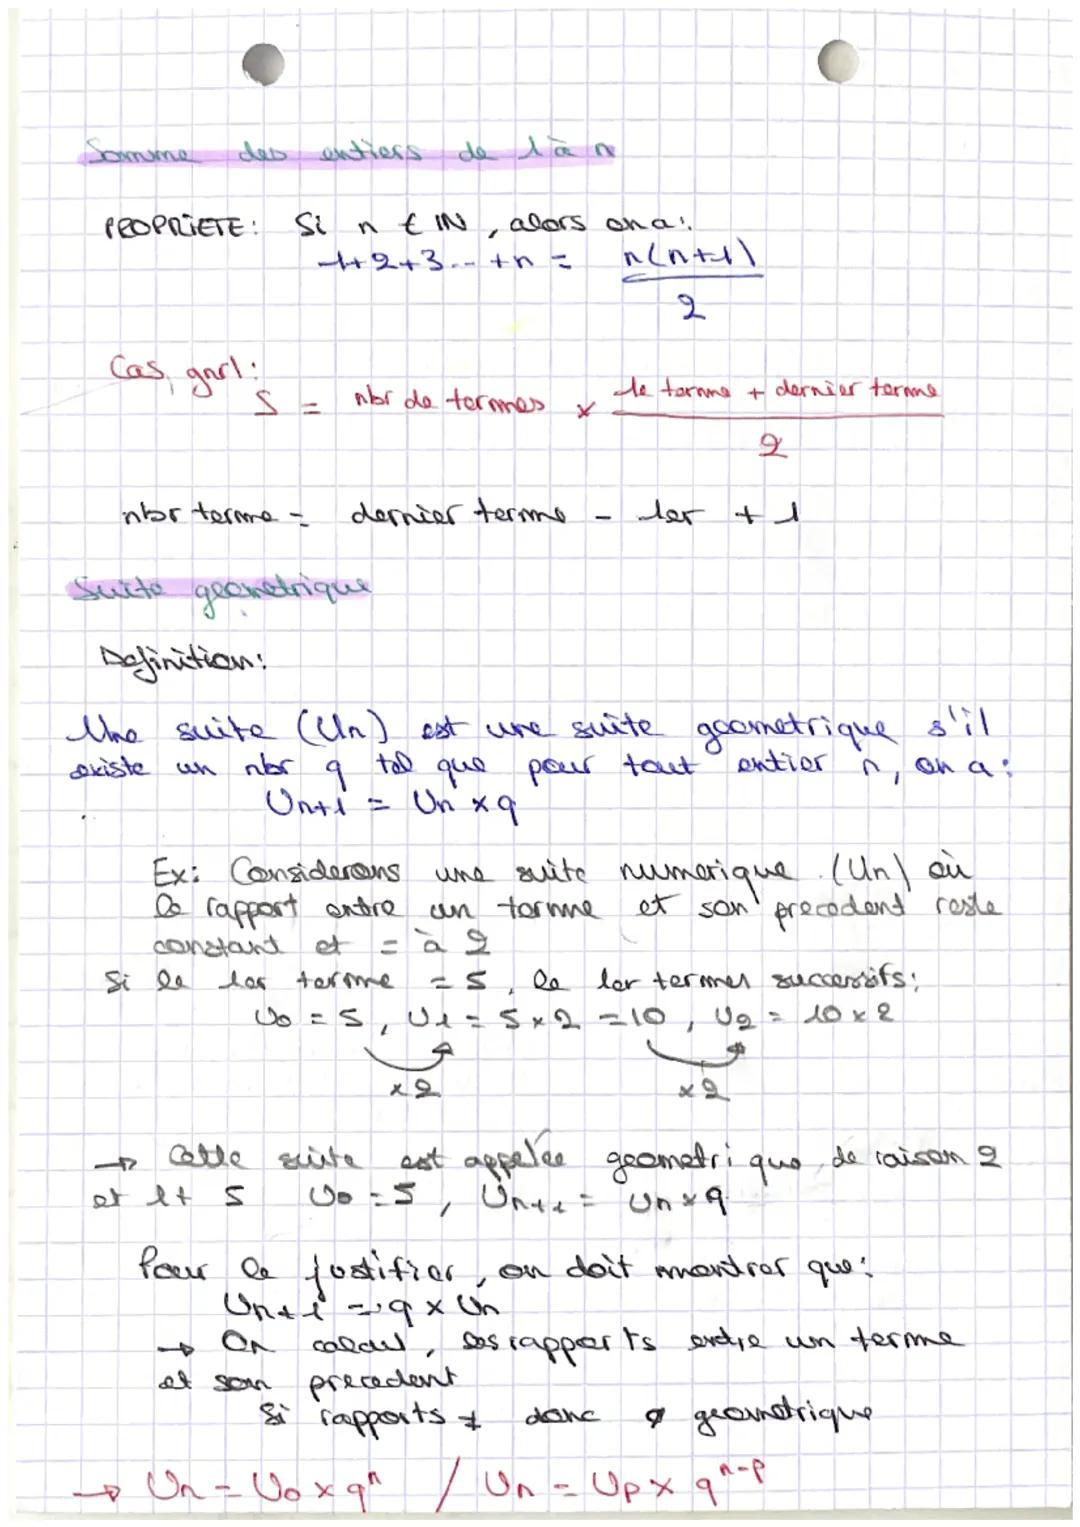 Somme des entiers de 1 à n
PROPRIETE : Si n ∈ IN, alors on a :
1+2+3... +n = n(n+1)
2
Cas gnrl :
S = nbr de termes x 1e terme + dernier terme
2
nbr terme = dernier terme - 1er + 1
Suite geometrique
Definition :
Une suite (Un) est une suite geometrique s'il
existe un nbr q tel que pour tout entier n, on a :
Un+1 = Un x q
Ex : Considerons une suite numerique (Un) où
le rapport entre un terme et son precedent reste
constant et = à 2
Si le 1er terme = 5, le 1er termes successifs :
U0 = 5, U1 = 5 x 2 = 10, U2 = 10 x 2
x2 x2
→ Cette suite est appelée geometrique, de raison 2
et 1t 5 U0 = 5, Un+1 = Un x q
Pour le justifier, on doit montrer que :
Un+1 = q x Un
→ On calcul, les rapports entre un terme
et son precedent
Si rapports ≠ donc ø geometrique
→ Un = U0 x qⁿ / Un = Up x qⁿ⁻ᵖ